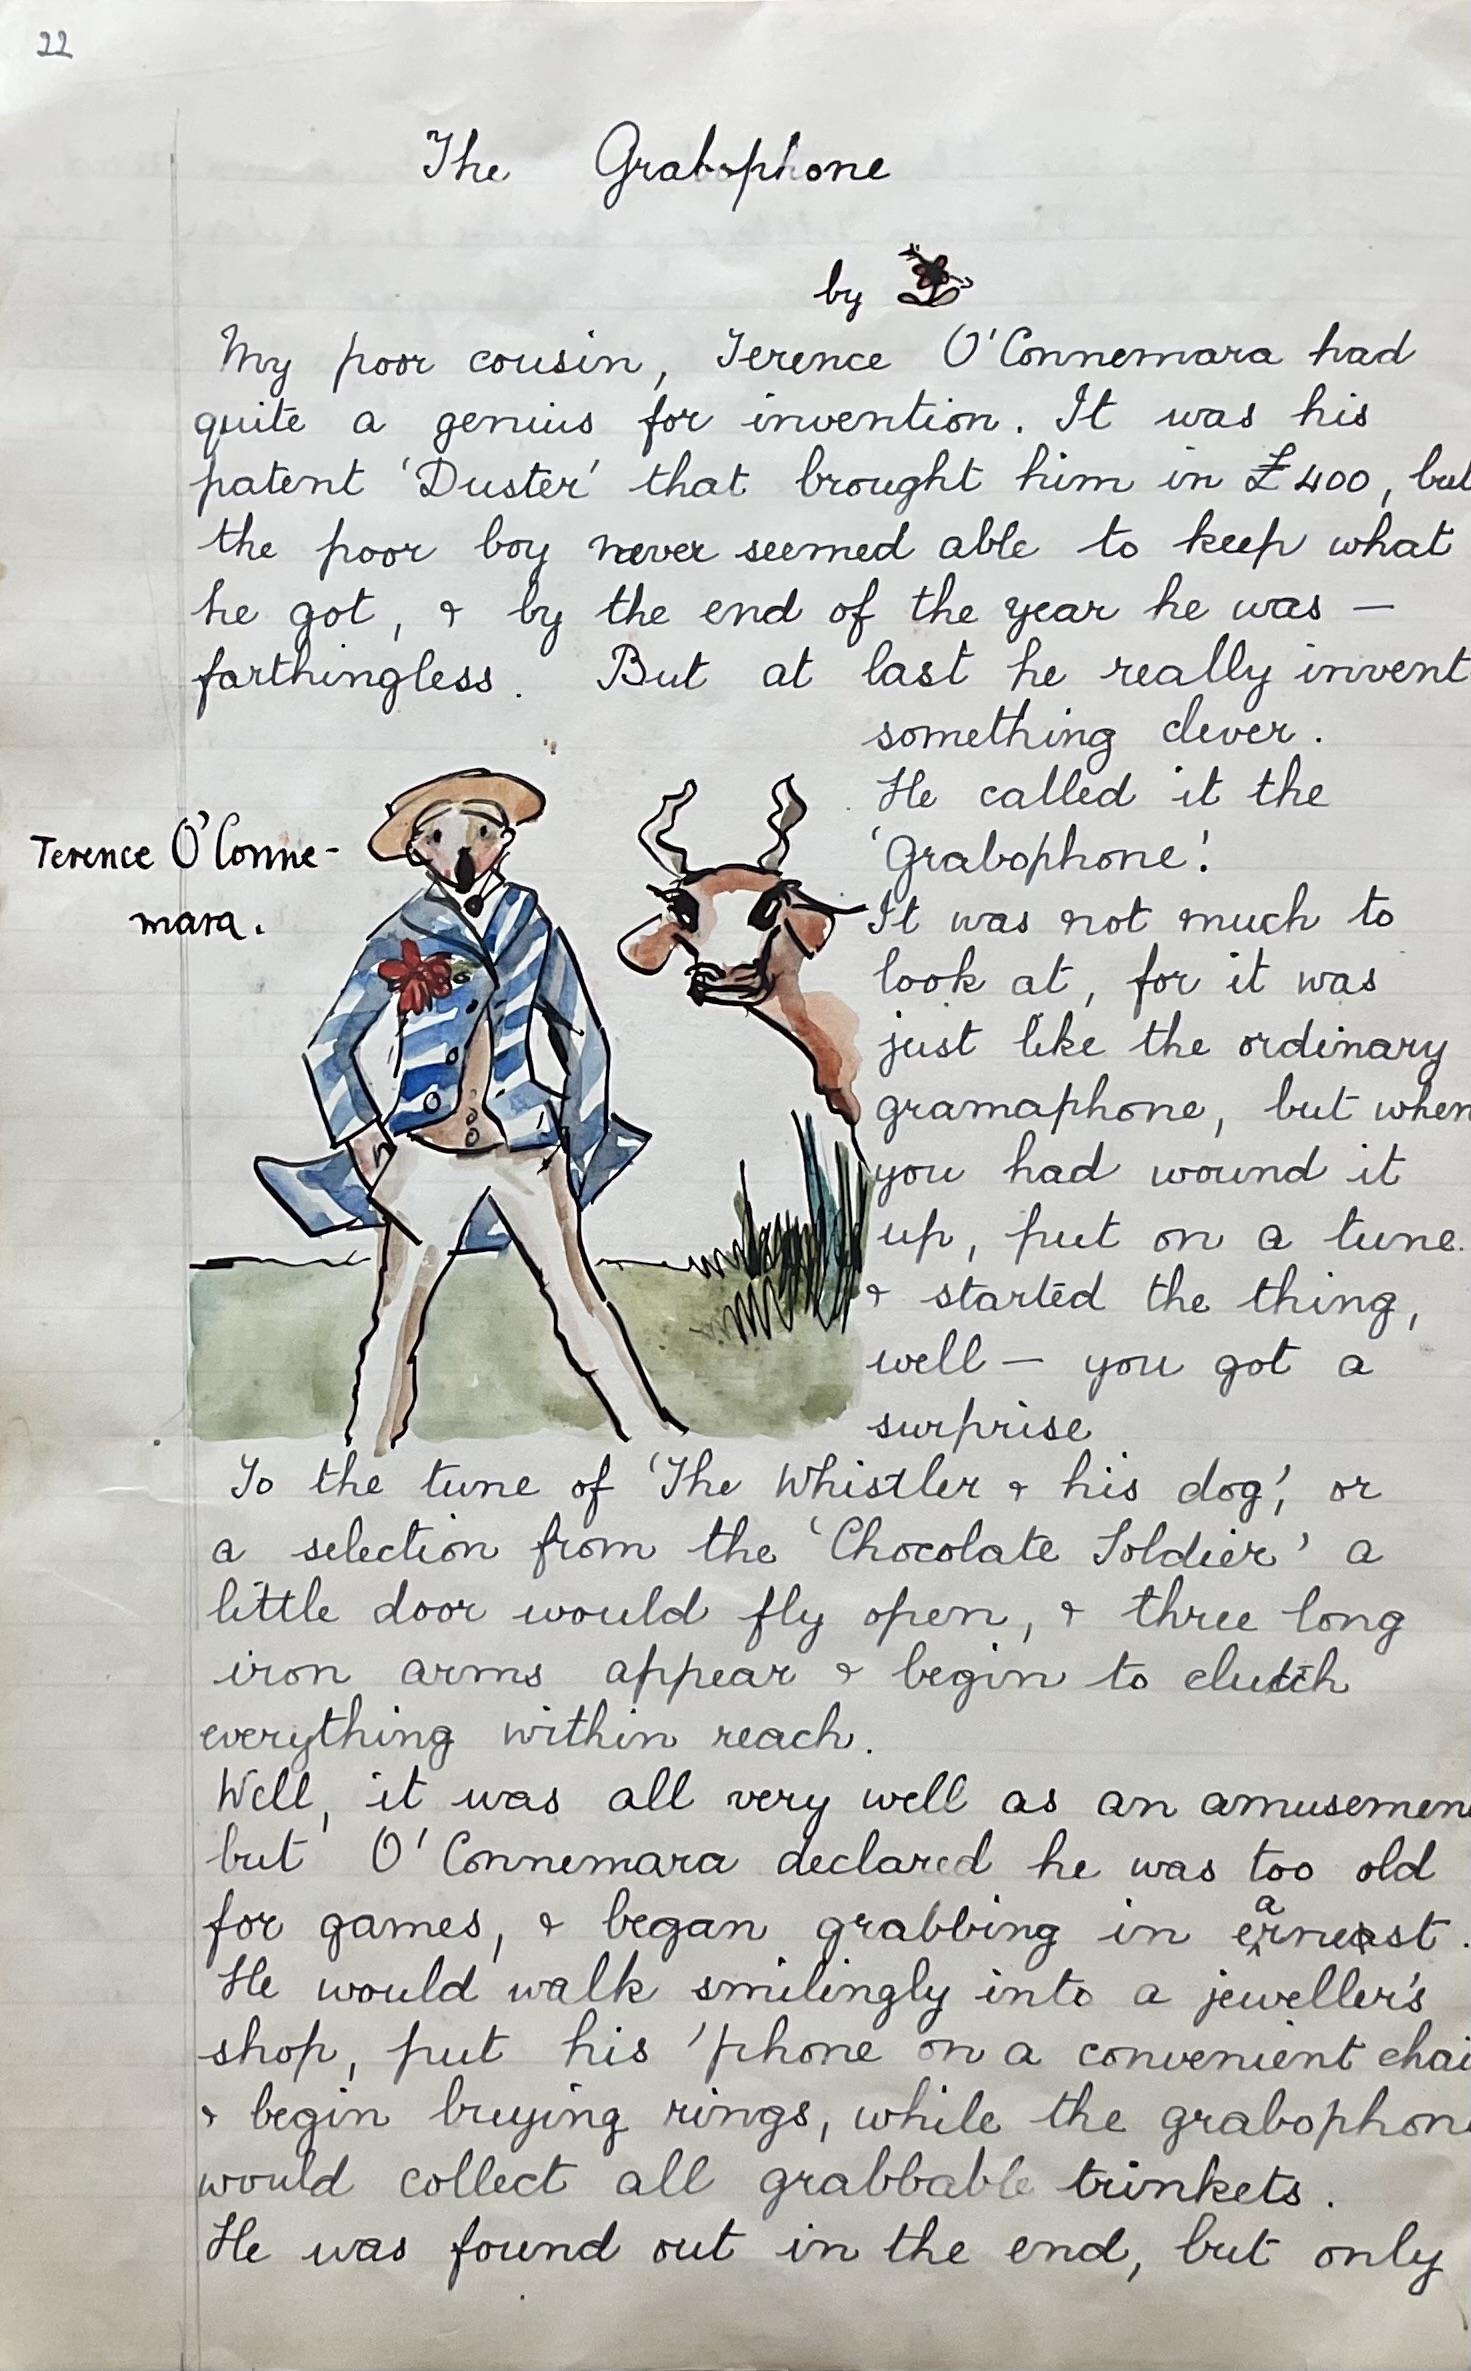 22
The Grabophone
by
My poor cousin, Terence O'Connemara had
quite a genius for invention. It was his
patent 'Duster' that brought him in £400, but
the poor boy never seemed able to keep what
he got, & by the end of the year he was —
farthingless. But at last he really invent
something clever.
He called it the
'Grabophone'.
Terence O'Conne-
mara.
It was not much to
look at, for it was
just like the ordinary
gramaphone, but when
you had wound it
up, put on a tune
& started the thing,
well — you got a
surprise
To the tune of 'The Whistler & his dog', or
a selection from the 'Chocolate Soldier' a
little door would fly open, & three long
iron arms appear & begin to clutch
everything within reach.
Well, it was all very well as an amusemen
but O'Connemara declared he was too old
for games, & began grabbing in earnest.
He would walk smilingly into a jeweller's
shop, put his 'phone on a convenient chai
& begin buying rings, while the grabophon
would collect all grabbable trinkets.
He was found out in the end, but only